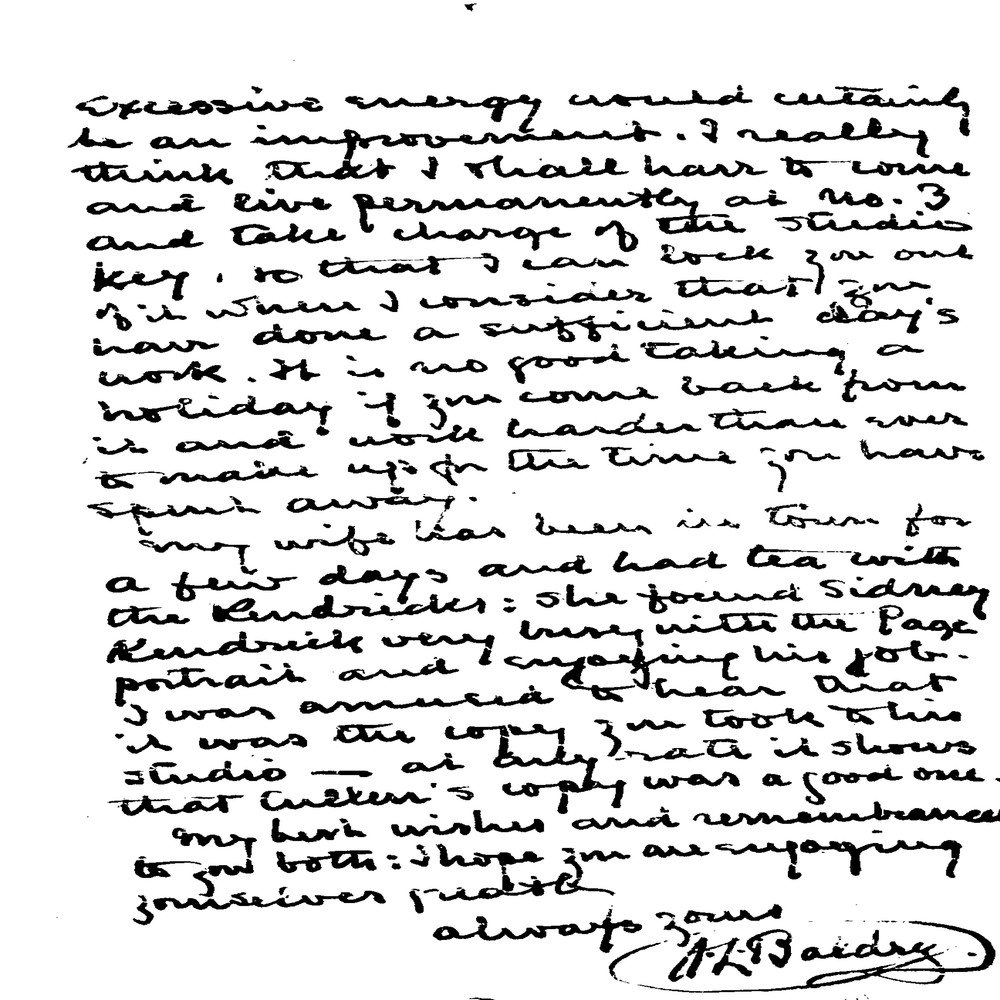 Excessive energy would certainly
be an improvement. I really
think that I shall have to come
and live permanently at No. 3
and take charge of the studio
key, so that I can lock you out
of it when I consider that you
have done a sufficient day's
work. It is no good taking a
holiday if you come back from
it and work harder than ever
to make up for the time you have
spent away.
My wife has been in town for
a few days and had tea with
the Kendricks: she found Sidney
Kendrick very busy with the Page
portrait and enjoying his job.
I was amused to hear that
it was the copy you took to his
studio — at any rate it shows
that copy was a good one.
My best wishes and remembrances
to you both: I hope you are enjoying
yourselves greatly
always yours
A. L. Baldry.